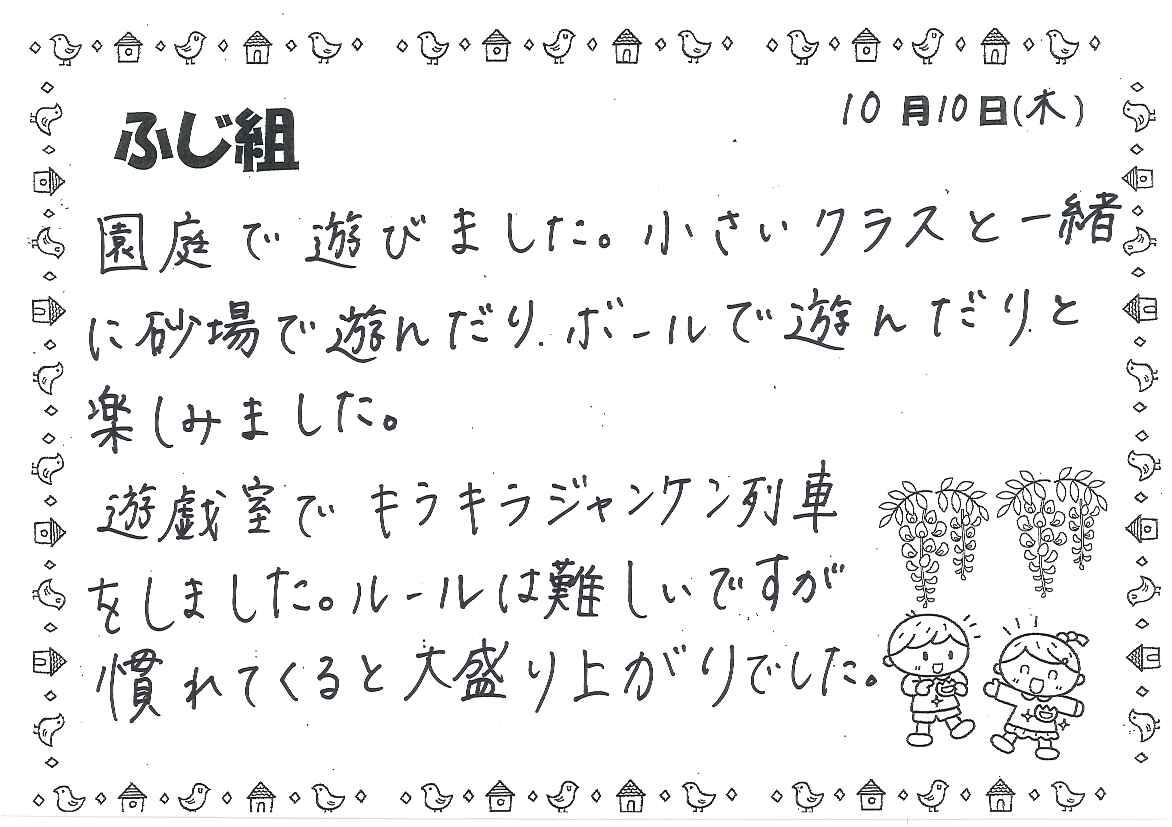 ふじ組
10月10日(木)
園庭で遊びました。小さいクラスと一緒
に砂場で遊んだり、ボールで遊んだりと
楽しみました。
遊戯室でキラキラジャンケン列車
をしました。ルールは難しいですが
慣れてくると大盛り上がりでした。